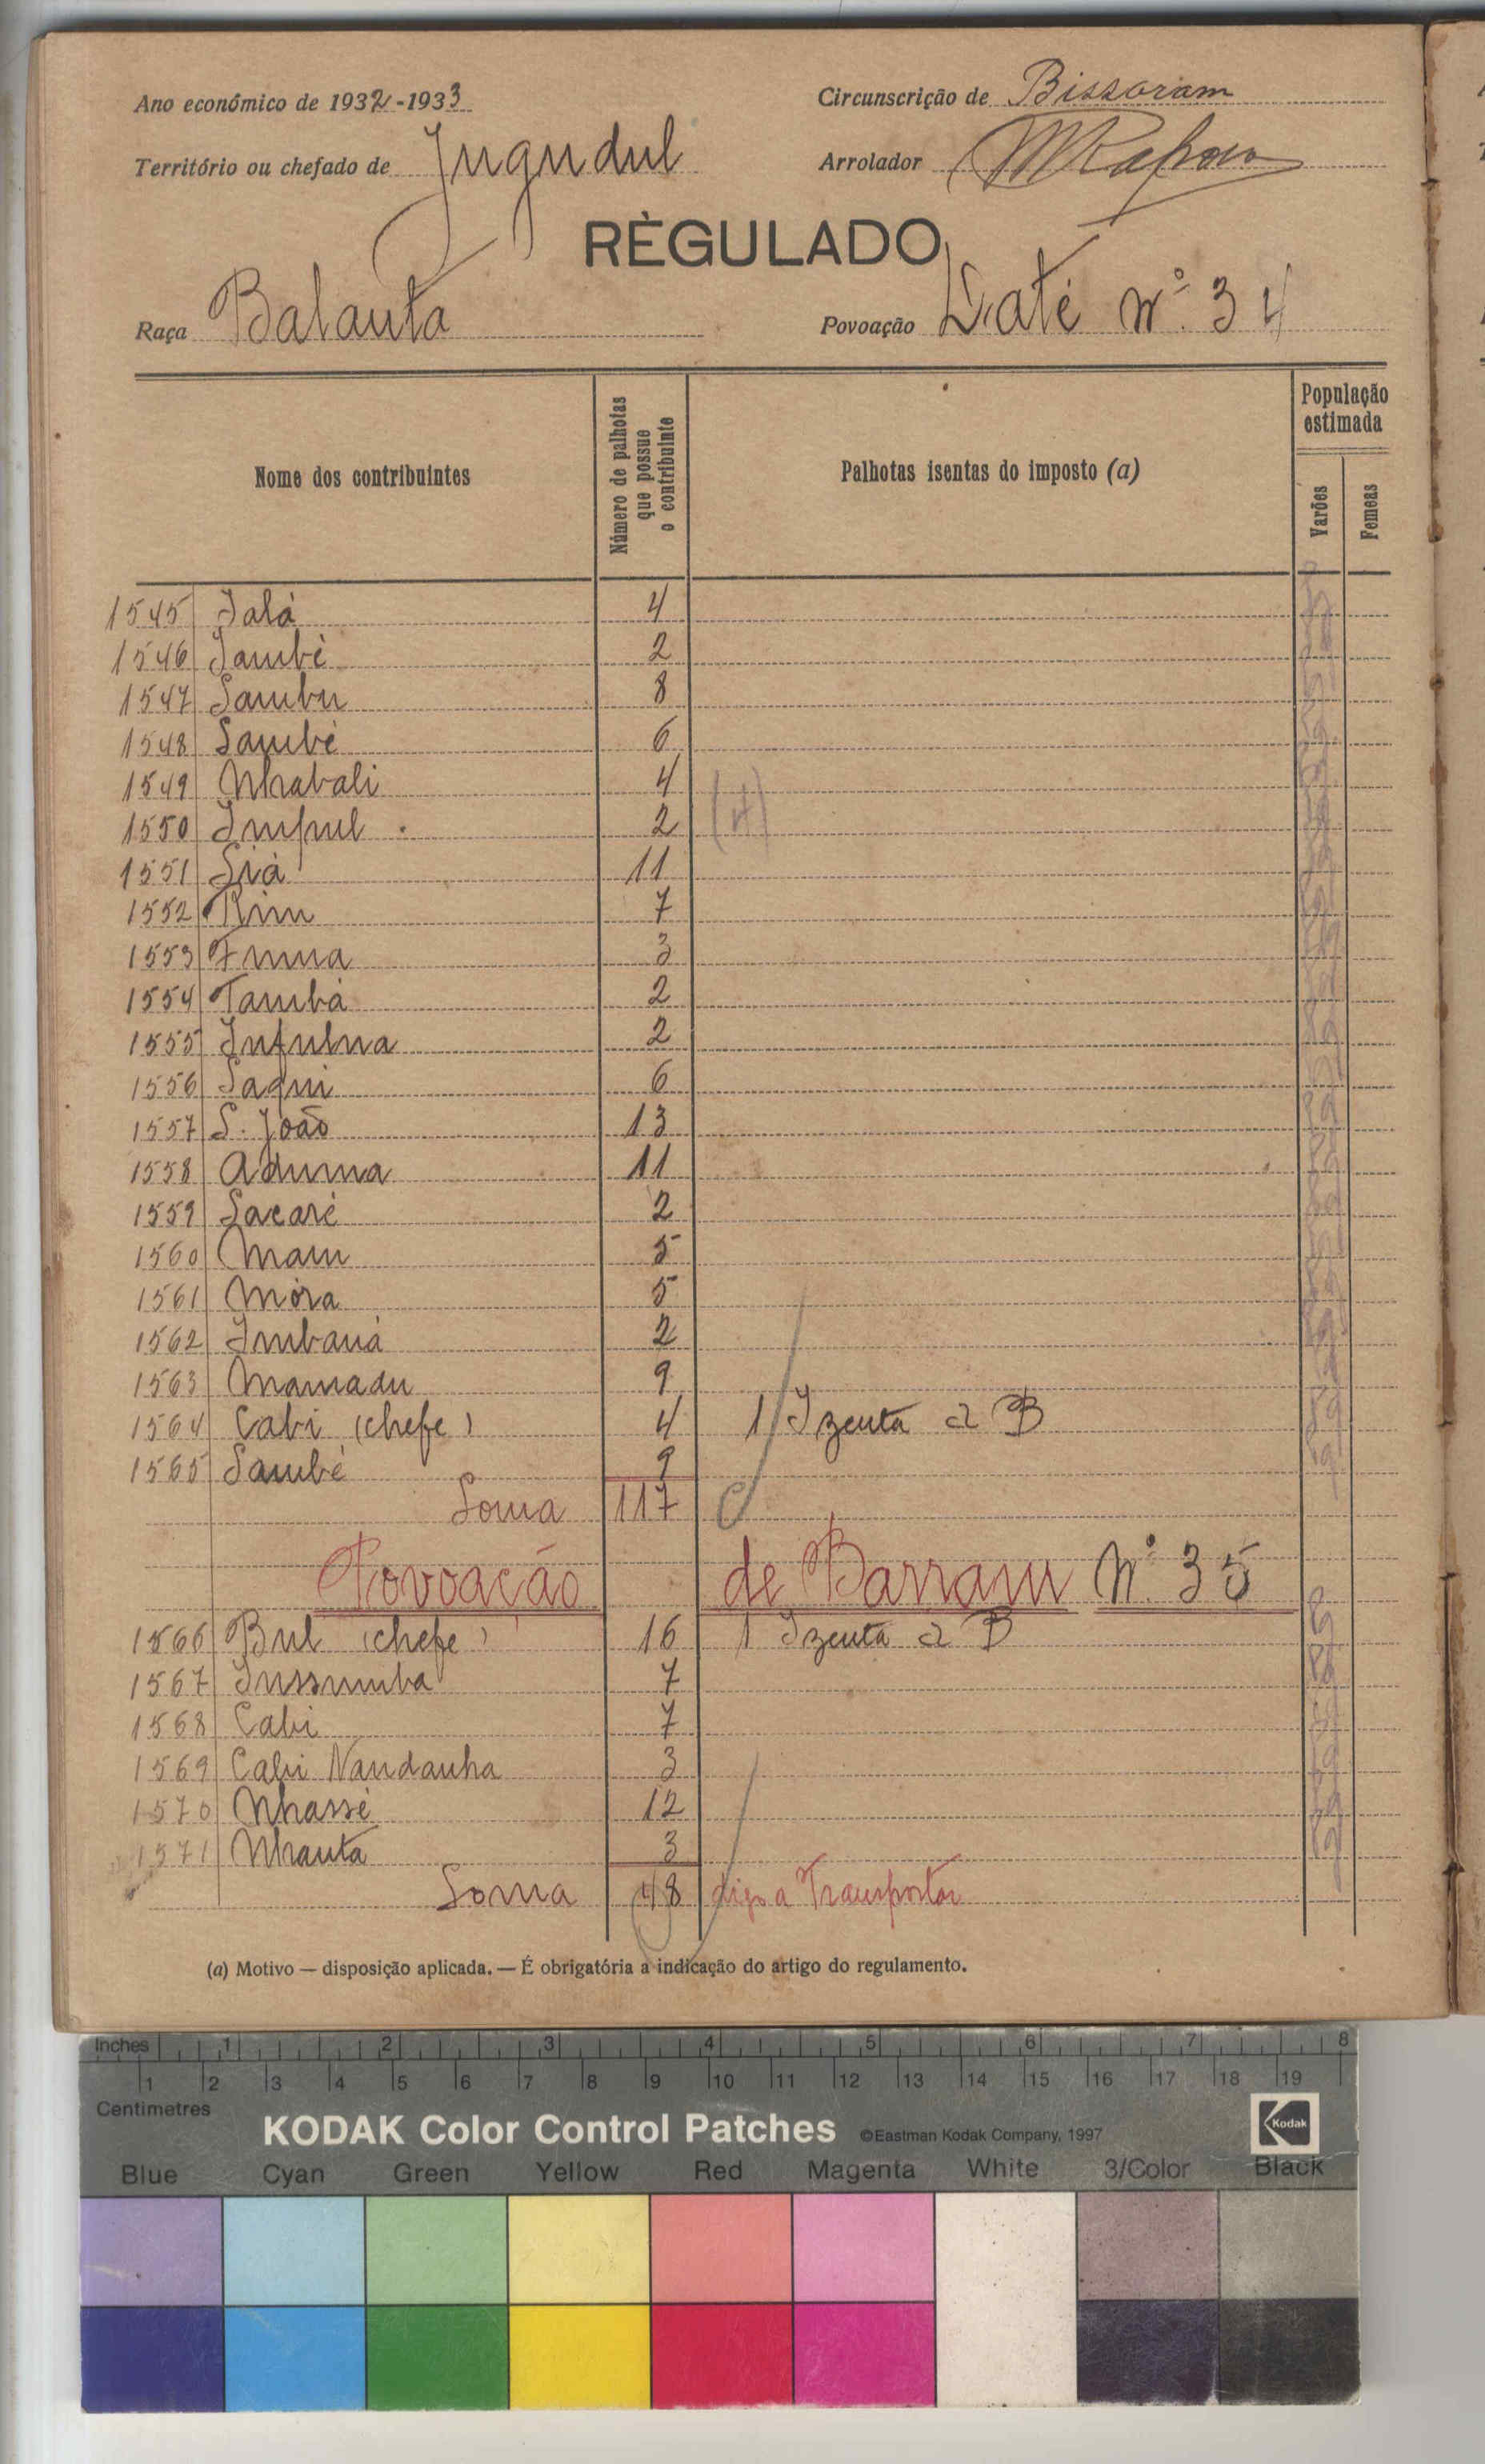 Ano económico de 1932-1933
Circunscrição de Bissoram
Território ou chefado de Jugudul
Arrolador
RÈGULADO
Raça Balanta
Povoação Daté Nº 34
Nome dos contribuintes
Número de palhotas que possue o contribuinte
Palhotas isentas do imposto (a)
População estimada
Varões
Femeas
1545 Jalá 4
1546 Jambè 2
1547 Sambu 8
1548 Sambé 6
1549 Nhabali 4
1550 2
1551 Siá 11
1552 7
1553 3
1554 Tambá 2
1555 2
1556 Saqui 6
1557 S. João 13
1558 Aduma 11
1559 Sacaré 2
1560 Mam 5
1561 Móra 5
1562 Imbaná 2
1563 Mamadu 9
1564 Cabi (chefe) 4 1 Izenta a B
1565 Sambé 9
Soma 117
Povoação de Barram Nº 35
1566 Bul (chefe) 16 1 Izenta a B
1567 Jussumba 7
1568 Cabi 7
1569 Cabi Nandanha 3
1570 Nhassé 12
1571 Nhanta 3
Soma 48 digo a Transportar
(a) Motivo — disposição aplicada. — É obrigatória a indicação do artigo do regulamento.
Inches 1 2 3 4 5 6 7 8
1 2 3 4 5 6 7 8 9 10 11 12 13 14 15 16 17 18 19
Centimetres
KODAK Color Control Patches ©Eastman Kodak Company, 1997 Kodak
Blue Cyan Green Yellow Red Magenta White 3/Color Black